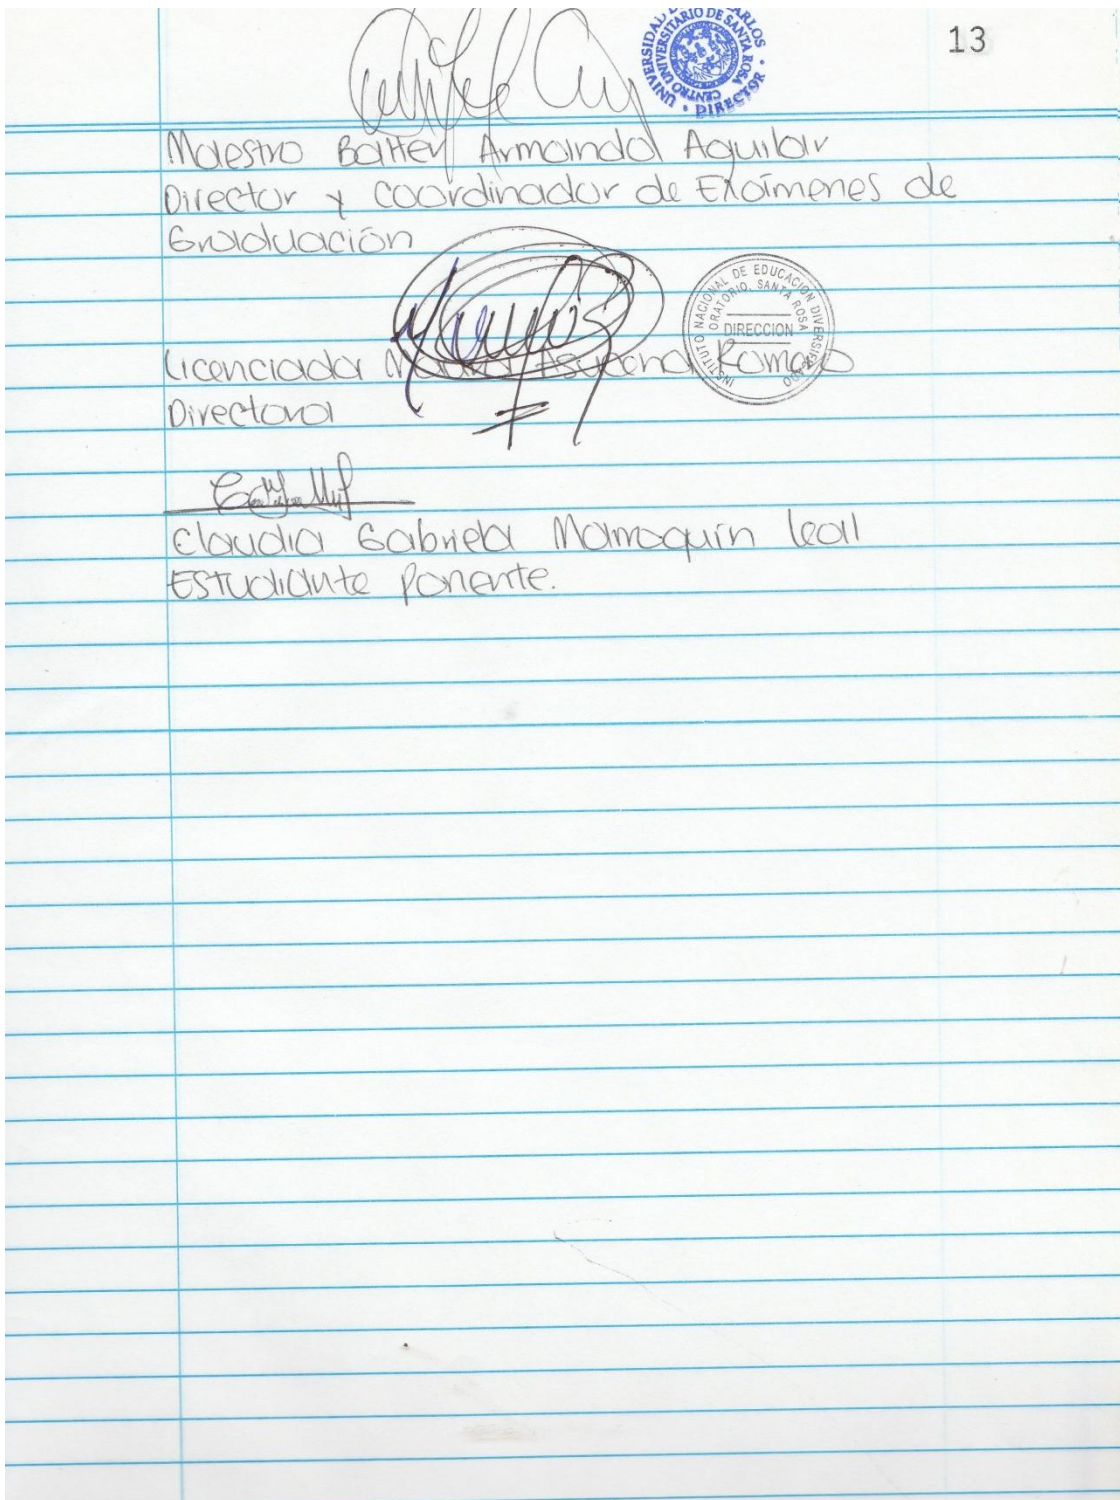 13
UNIVERSIDAD DE SAN CARLOS
CENTRO UNIVERSITARIO DE SANTA ROSA
DIRECTOR
Maestro Balter Armando Aguilar
Director y Coordinador de Exámenes de
Graduación
INSTITUTO NACIONAL DE EDUCACION DIVERSIFICADO
ORATORIO, SANTA ROSA
DIRECCION
Licenciada Azucena Romero
Directora
Claudia Gabriela Marroquín leal
Estudiante Ponente.